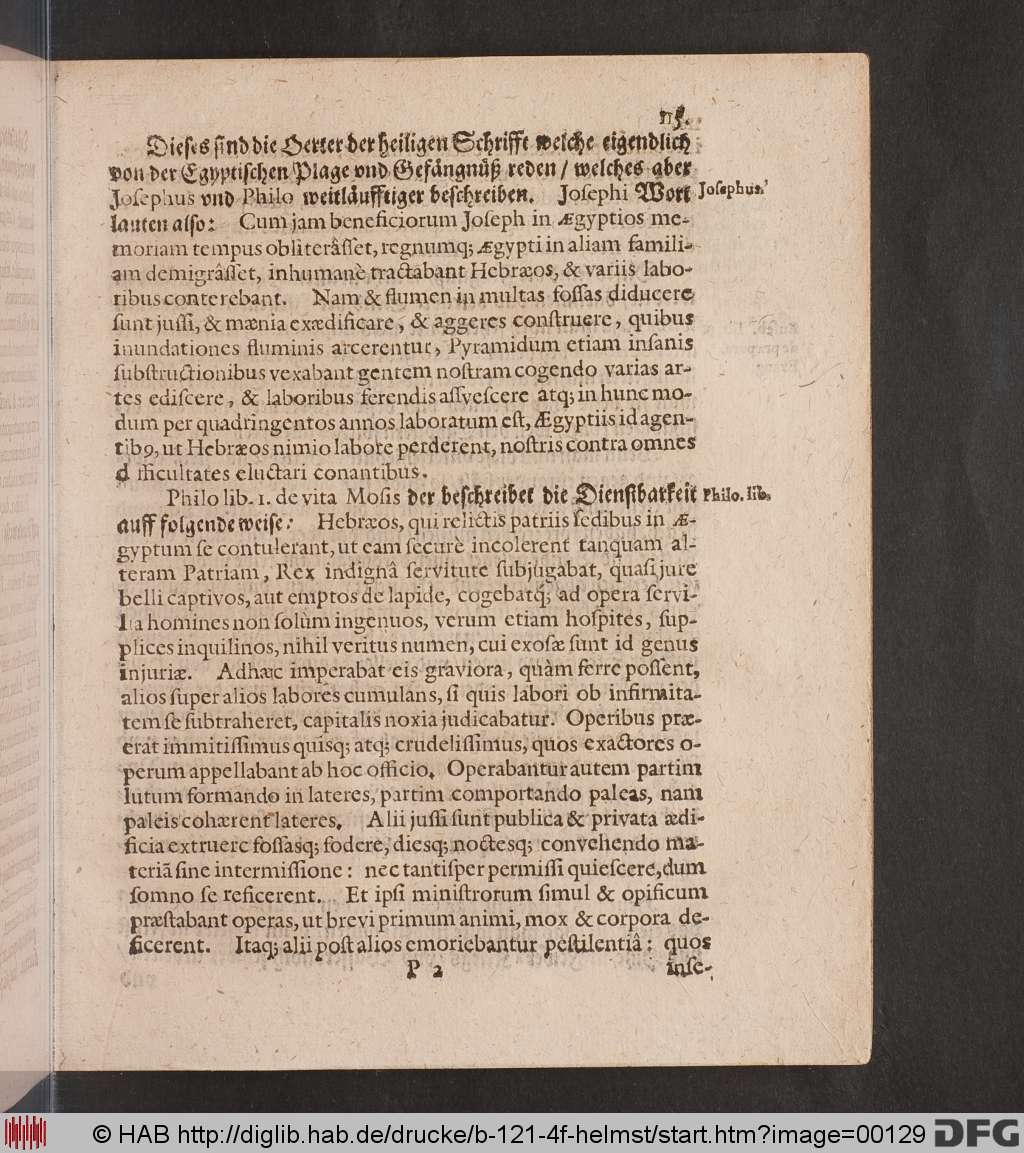 115.
Dieses sind die Oerter der heiligen Schrifft welche eigendlich
von der Egyptischen Plage vnd Gefängnüß reden / welches aber
Joſephus vnd Philo weitläufftiger beschreiben. Joſephi Wort
Joſephus.
lauten also: Cum jam beneficiorum Joſeph in Ægyptios me-
moriam tempus obliterâſſet, regnumq; Ægypti in aliam famili-
am demigrâſſet, inhumanè tractabant Hebræos, & variis labo-
ribus conterebant. Nam & flumen in multas foſſas diducere
ſunt juſſi, & mænia exædificare, & aggeres conſtruere, quibus
inundationes fluminis arcerentur, Pyramidum etiam inſanis
ſubſtructionibus vexabant gentem noſtram cogendo varias ar-
tes ediſcere, & laboribus ferendis aſſveſcere atq; in hunc mo-
dum per quadringentos annos laboratum eſt, Ægyptiis id agen-
tibꝰ, ut Hebræos nimio labore perderent, noſtris contra omnes
difficultates eluctari conantibus.
Philo lib. 1. de vita Moſis der beschreibet die Dienstbarkeit
Philo. lib.
auff folgende weise: Hebræos, qui relictis patriis ſedibus in Æ-
gyptum ſe contulerant, ut eam ſecurè incolerent tanquam al-
teram Patriam, Rex indignâ ſervitute ſubjugabat, quaſi jure
belli captivos, aut emptos de lapide, cogebatq; ad opera ſervi-
lia homines non ſolùm ingenuos, verum etiam hoſpites, ſup-
plices inquilinos, nihil veritus numen, cui exoſæ ſunt id genus
injuriæ. Adhæc imperabat eis graviora, quàm ferre poſſent,
alios ſuper alios labores cumulans, ſi quis labori ob infirmita-
tem ſe ſubtraheret, capitalis noxia judicabatur. Operibus præ-
erat immitiſſimus quisq; atq; crudeliſſimus, quos exactores o-
perum appellabant ab hoc officio. Operabantur autem partim
lutum formando in lateres, partim comportando paleas, nam
paleis cohærent lateres. Alii juſſi ſunt publica & privata ædi-
ficia extruere foſſasq; fodere, diesq; noctesq; convehendo ma-
teriã ſine intermiſſione: nec tantiſper permiſſi quieſcere, dum
ſomno ſe reficerent. Et ipſi miniſtrorum ſimul & opificum
præſtabant operas, ut brevi primum animi, mox & corpora de-
ficerent. Itaq; alii poſt alios emoriebantur peſtilentiâ: quos
P 2
inſe-
© HAB http://diglib.hab.de/drucke/b-121-4f-helmst/start.htm?image=00129
DFG